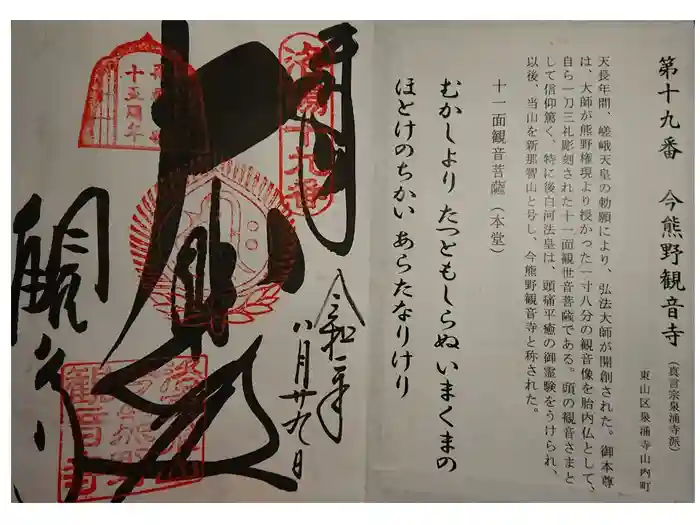 第十九番 今熊野観音寺
(真言宗泉涌寺派)
東山区泉涌寺山内町
天長年間、嵯峨天皇の勅願により、弘法大師が開創された。御本尊
は、大師が熊野権現より授かった一寸八分の観音像を胎内仏として、
自ら一刀三礼彫刻された十一面観世音菩薩である。頭の観音さまと
して信仰篤く、特に後白河法皇は、頭痛平癒の御霊験をうけられ、
以後、当山を新那智山と号し、今熊野観音寺と称された。
十一面観音菩薩(本堂)
むかしより たつともしらぬ いまくまの
ほとけのちかい あらたなりけり
洛陽十九番
令和二年
八月廿九日
十五周年